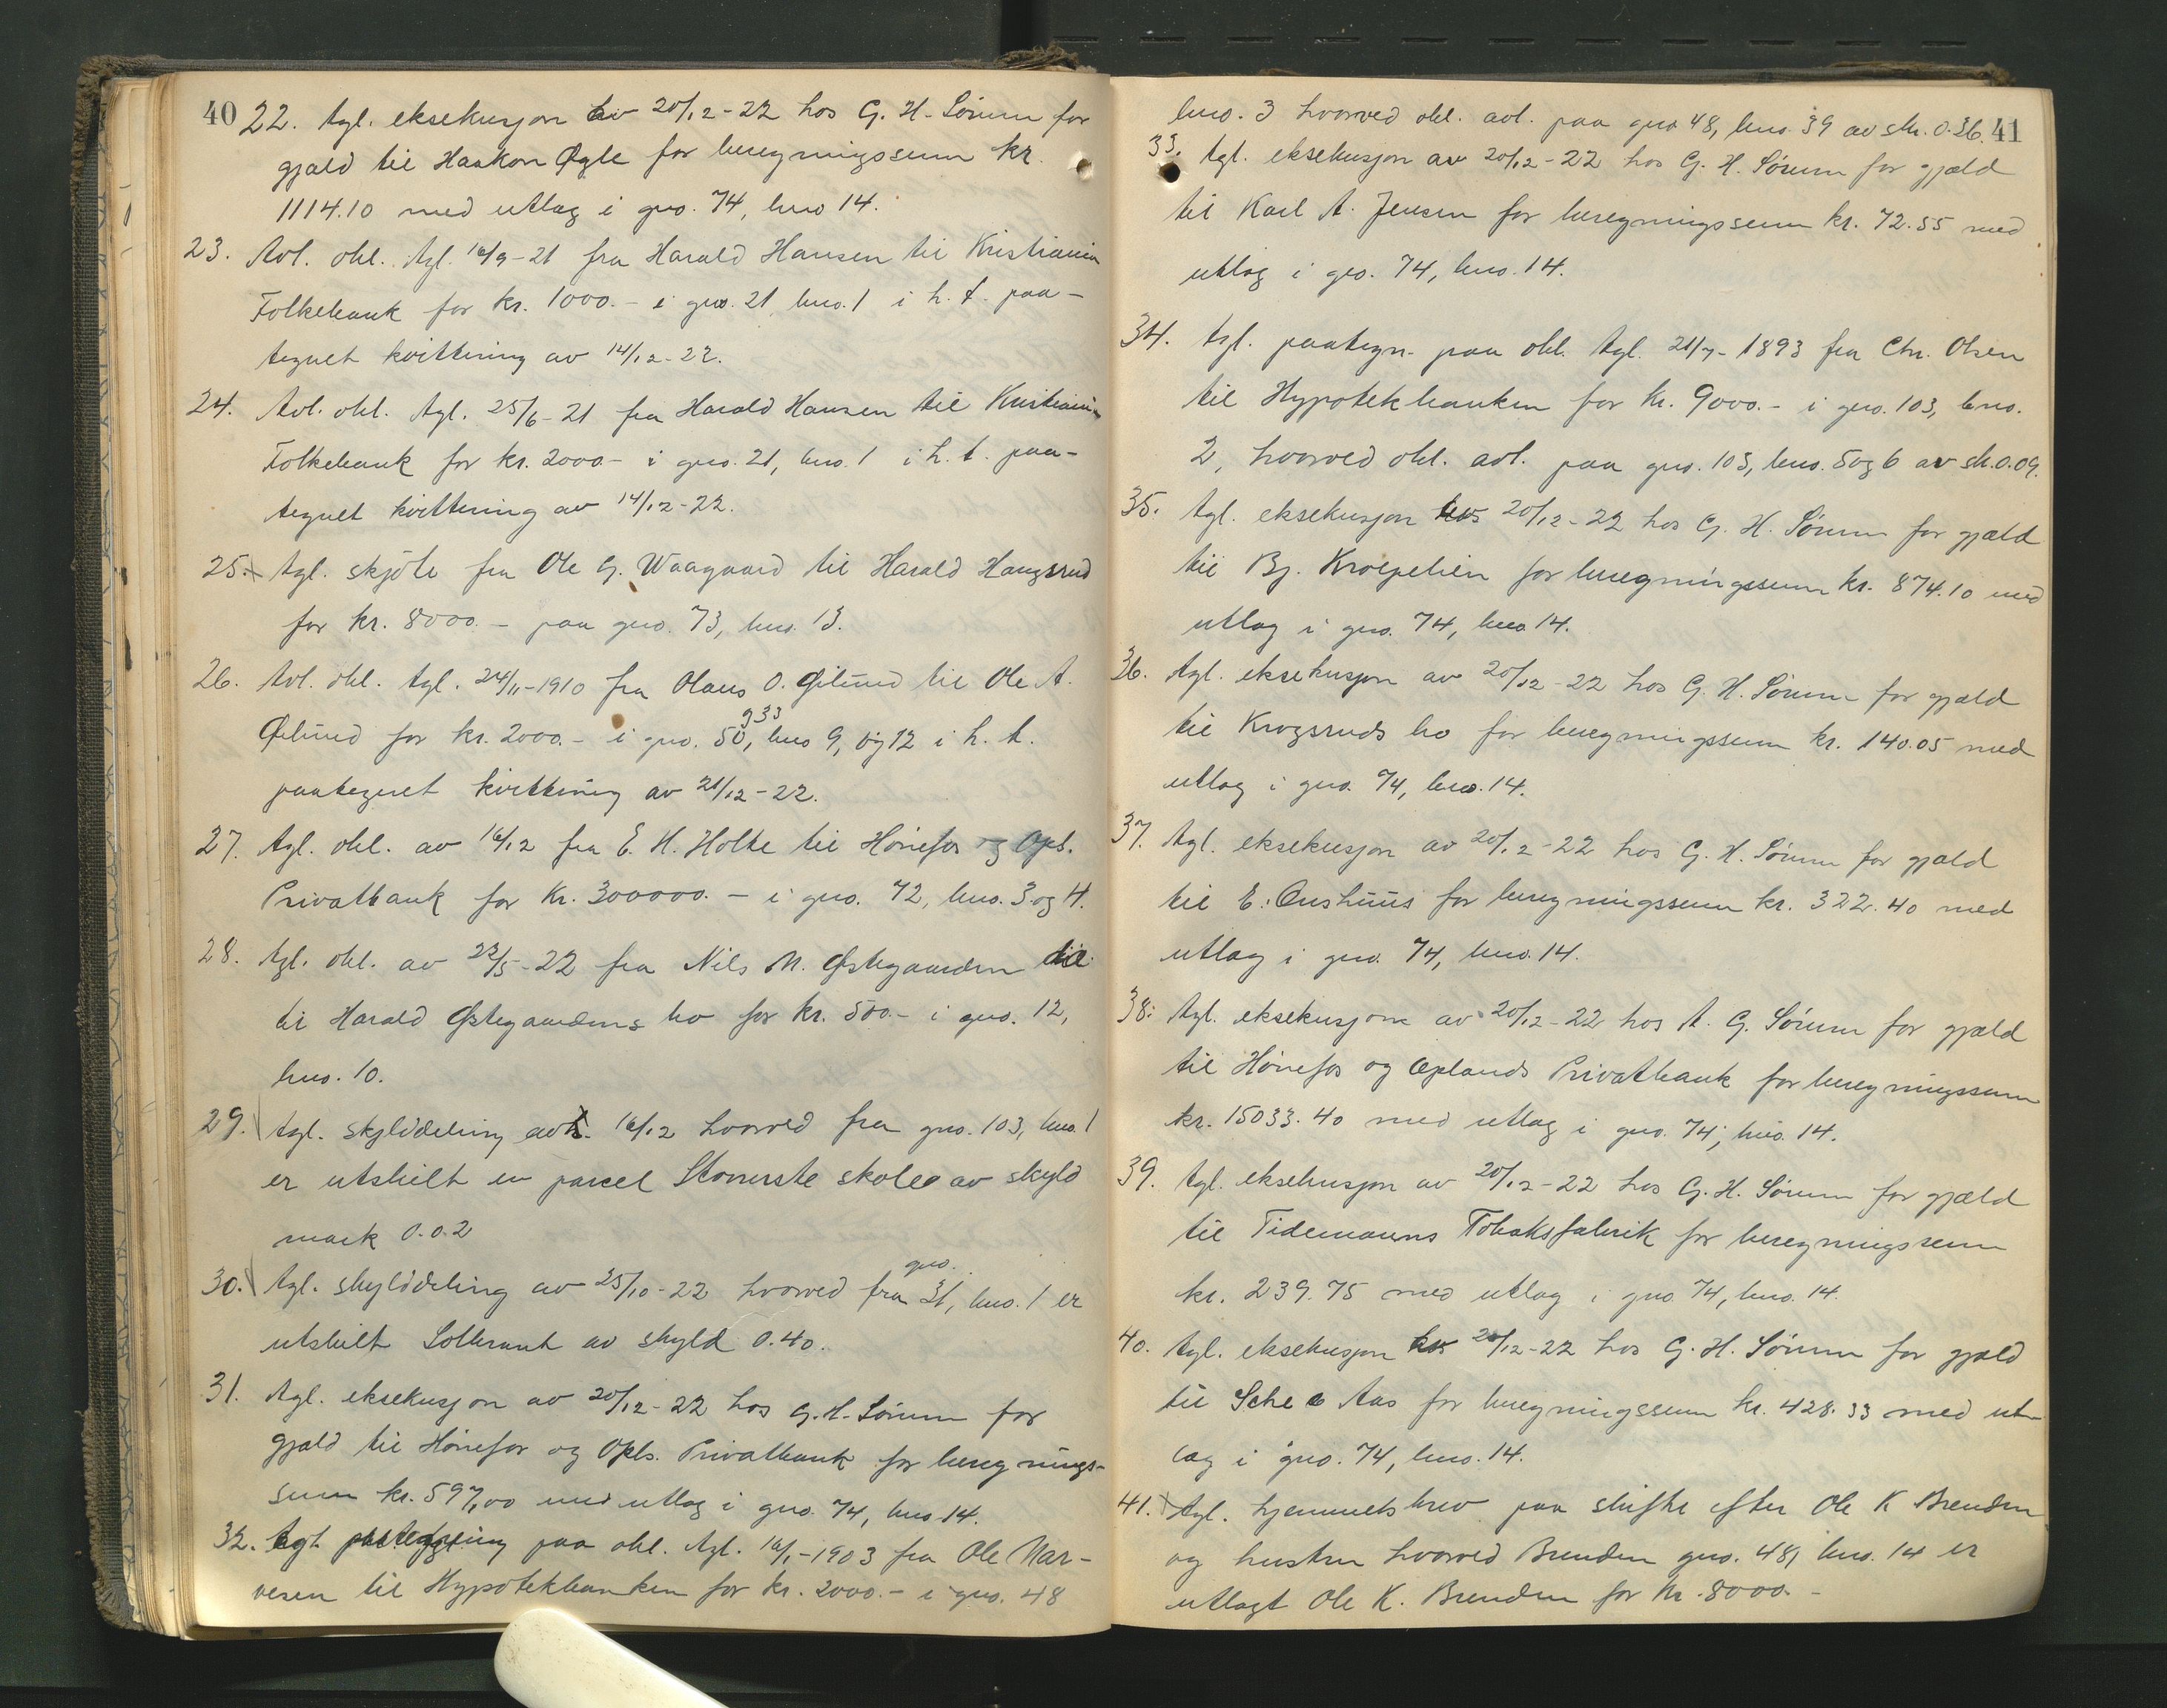 40
22. Tgl. eksekusjon av 20/12-22 hos G. H. Sörum for
gjæld til Haakon Øgle for beregningssum kr.
1114.10 med utlæg i gno. 74, bno 14.
23. Avl. obl. tgl. 16/9-21 fra Harald Hansen til Kristiania
Folkebank for kr. 1000.- i gno. 21, bno. 1 i h. t. paa-
tegnet kvittering av 14/12-22.
24. Avl. obl. tgl. 25/6-21 fra Harald Hansen til Kristiania
Folkebank for kr. 2000.- i gno. 21, bno. 1 i h. t. paa-
tegnet kvittering av 14/12-22.
25. Tgl. skjöte fra Ole G. Waagaard til Harald Haugsrud
for kr. 8000.- paa gno. 73, bno. 13.
26. Avl. obl. tgl. 24/11-1910 fra Olaus O. Øilund til Ole A.
933
Øilund for kr. 2000.- i gno. 50, bno 9, og 12 i h. t.
paategnet kvittering av 21/12-22.
27. Tgl. obl. av 16/12 fra E. H. Holte til Hönefos og Opl.
Privatbank for Kr. 300000.- i gno. 72, bno. 3 og 4.
28. Tgl. obl. av 22/5-22 fra Nils M. Østegaarden til
til Harald Østegaardens bo for kr. 500.- i gno. 12,
bno. 10.
29. Tgl. skylddeling av 16/12 hvorved fra gno. 103, bno. 1
er utskilt en parcel skole av skyld
mark 0.0.2
gno.
30. Tgl. skylddeling av 25/10-22 hvorved fra 31, bno. 1 er
utskilt Solbrant av skyld 0.40.
31. Tgl. eksekusjon av 20/12-22 hos G. H. Sörum for
gjæld til Hönefos og Opls. Privatbank for beregnings-
sum kr. 597,00 med utlæg i gno. 74, bno. 14.
32. Tgl. paategning paa obl. tgl. 16/1-1903 fra Ole Nar-
vesen til Hypotekbanken for kr. 2000.- i gno. 48
41
bno. 3 hvorved obl. avl. paa gno 48, bno. 39 av sk. 0.36.
33. Tgl. eksekusjon av 20/12-22 hos G. H. Sörum for gjæld
til Karl A. Jensen for beregningssum kr. 72.55 med
utlæg i gno. 74, bno. 14.
34. Tgl. paategn. paa obl. tgl. 21/7-1893 fra Chr. Olsen
til Hypotekbanken for Kr. 9000.- i gno. 103, bno.
2, hvorved obl. avl. paa gno. 103, bno. 5 og 6 av sk. 0.09.
35. Tgl. eksekusjon av 20/12-22 hos G. H. Sörum for gjæld
til Bj. Kroepelien for beregningssum kr. 874.10 med
utlæg i gno. 74, bno. 14.
36. Tgl. eksekusjon av 20/12-22 hos G. H. Sörum for gjæld
til Krogsruds bo for beregningssum kr. 140.05 med
utlæg i gno. 74, bno. 14.
37. Tgl. eksekusjon av 20/12-22 hos G. H. Sörum for gjæld
til E. for beregningssum kr. 322.40 med
utlæg i gno. 74, bno. 14.
38. Tgl. eksekusjon av 20/12-22 hos A. G. Sörum for gjæld
til Hönefos og Oplands Privatbank for beregningssum
kr. 15033.40 med utlæg i gno. 74, bno. 14.
39. Tgl. eksekusjon av 20/12-22 hos G. H. Sörum for gjæld
til Tidemanns Tobaksfabrik for beregningssum
kr. 239.75 med utlæg i gno. 74, bno. 14.
40. Tgl. eksekusjon av 20/12-22 hos G. H. Sörum for gjæld
til Aas for beregningssum kr. 428.33 med ut-
læg i gno. 74, bno. 14.
41. Tgl. hjemmelsbrev paa skifte efter Ole K Brenden
og hustru hvorved Brenden gno. 48, bno. 14 er
utlagt Ole K. Brenden for kr. 8000.-